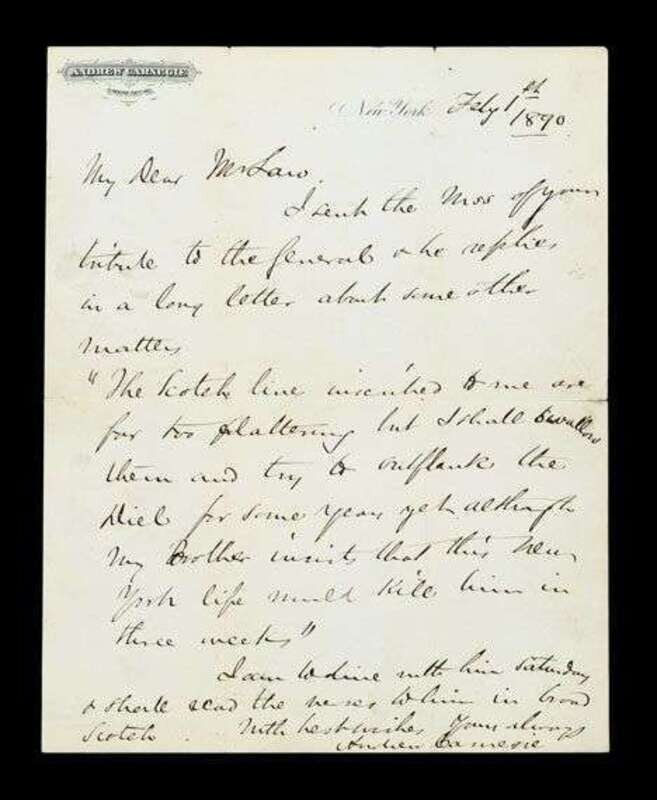 ANDREW CARNEGIE
New York Feby 1st
1890
My Dear Mr Law.
I sent the Mss of your
tribute to the General & he replies
in a long letter about some other
matters
"The Scotch line inscribed to me are
far too flattering but I shall swallow
them and try to outflank the
Diel for some years yet although
my brother insists that this New
York life would kill him in
three weeks"
I am to dine with him Saturday
& shall read the verses to him in broad
Scotch. With best wishes Yours always
Andrew Carnegie